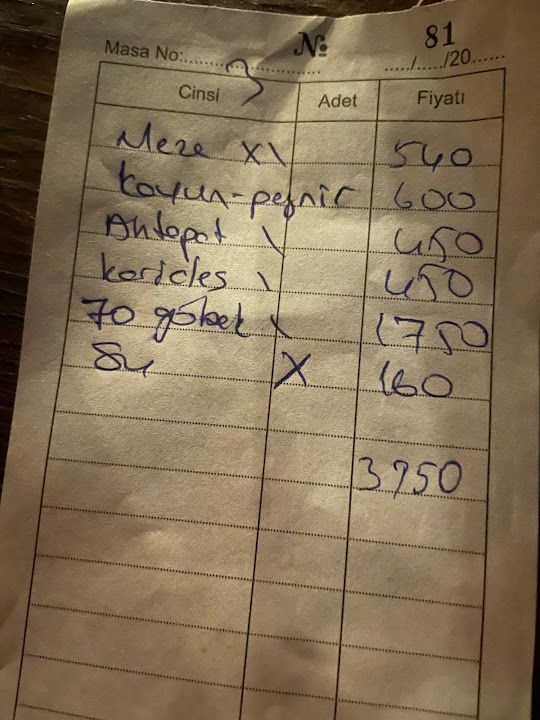 Masa No: 3 № 81
...../...../20......
Cinsi Adet Fiyatı
Meze X\ 540
Koyun-peynir 600
Ahtapot \ 450
karides \ 450
70 göbek \ 1750
Su X 160
3950